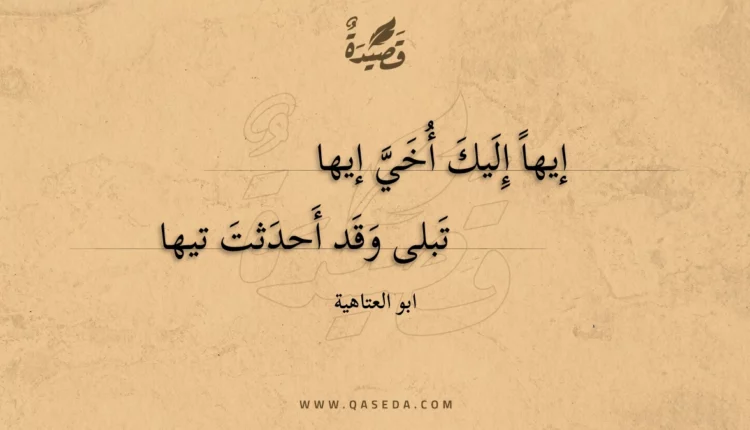 قَصِيْدَةٌ
إيهاً إِلَيكَ أُخَيَّ إيها
تَبلى وَقَد أَحدَثتَ تيها
ابو العتاهية
WWW.QASEDA.COM